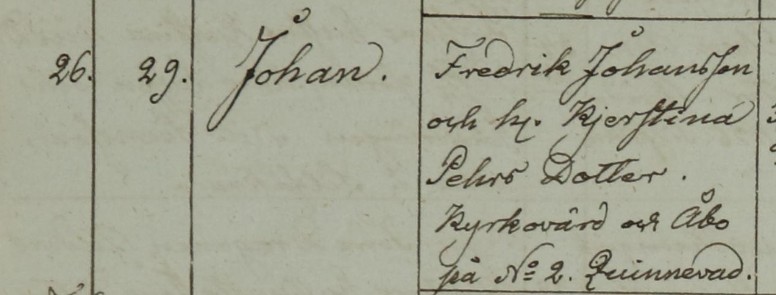 26. 29. Johan. Fredrik Johansson
och h. Kjerstina
Pehrs Dotter.
Kyrkovärd och Åbo
på No 2. Quinnevad.